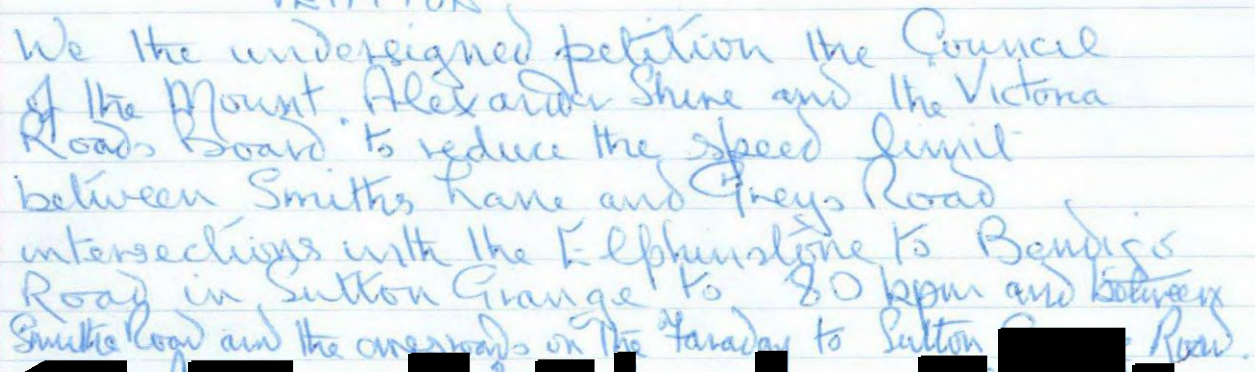 PETITION
We the undersigned petition the Council
of the Mount Alexander Shire and the Victoria
Roads Board to reduce the speed limit
between Smiths Lane and Greys Road
intersections with the Elphinstone to Bendigo
Road in Sutton Grange to 80 kpm and between
Smiths Road and the crossroads on the Faraday to Sutton Road.